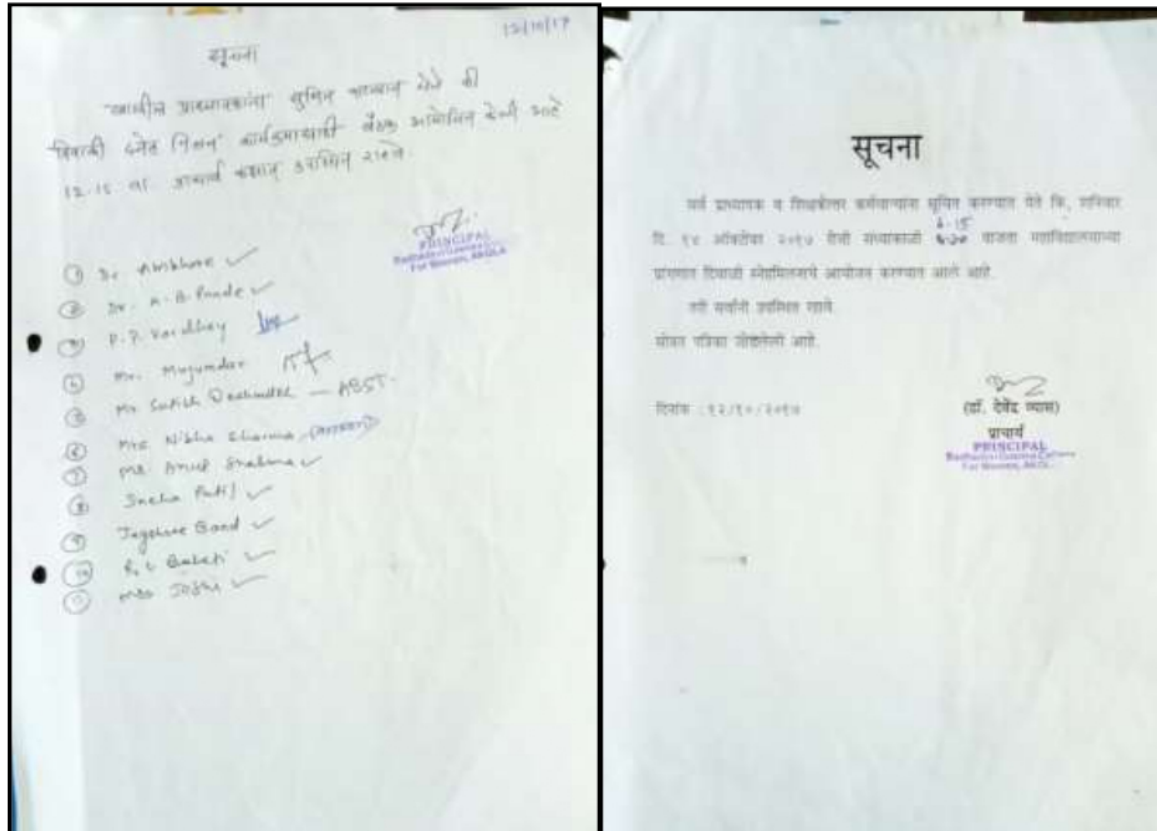 12/10/17
सूचना
खालील प्राध्यापकांना सुचित करण्यात येते की
दिवाळी स्नेह मिलन कार्यक्रमासाठी बैठक आयोजित केली आहे
12.15 वा. प्राचार्य कक्षात उपस्थित राहावे.
PRINCIPAL
For Women, AKOLA
① Dr. Ambhore
② Dr. A. B. Pande
P. P.
Mr. Mujumdar
Mr. Satish Deshmukh — ABST.
⑥ Mrs. Nibha Sharma
⑦ Anup Sharma
⑧ Sneha Patil
⑨ Jayshree Band
⑩
Joshi
सूचना
सर्व प्राध्यापक व शिक्षकेत्तर कर्मचाऱ्यांना सूचित करण्यात येते कि, शनिवार
6.15
दि. १४ ऑक्टोबर २०१७ रोजी संध्याकाळी वाजता महाविद्यालयाच्या
प्रांगणात दिवाळी स्नेहमिलनाचे आयोजन करण्यात आले आहे.
तरी सर्वांनी उपस्थित रहावे.
सोबत पत्रिका जोडलेली आहे.
दिनांक : १२/१०/२०१७
(डॉ. देवेंद्र व्यास)
प्राचार्य
PRINCIPAL
For Women, AKOLA